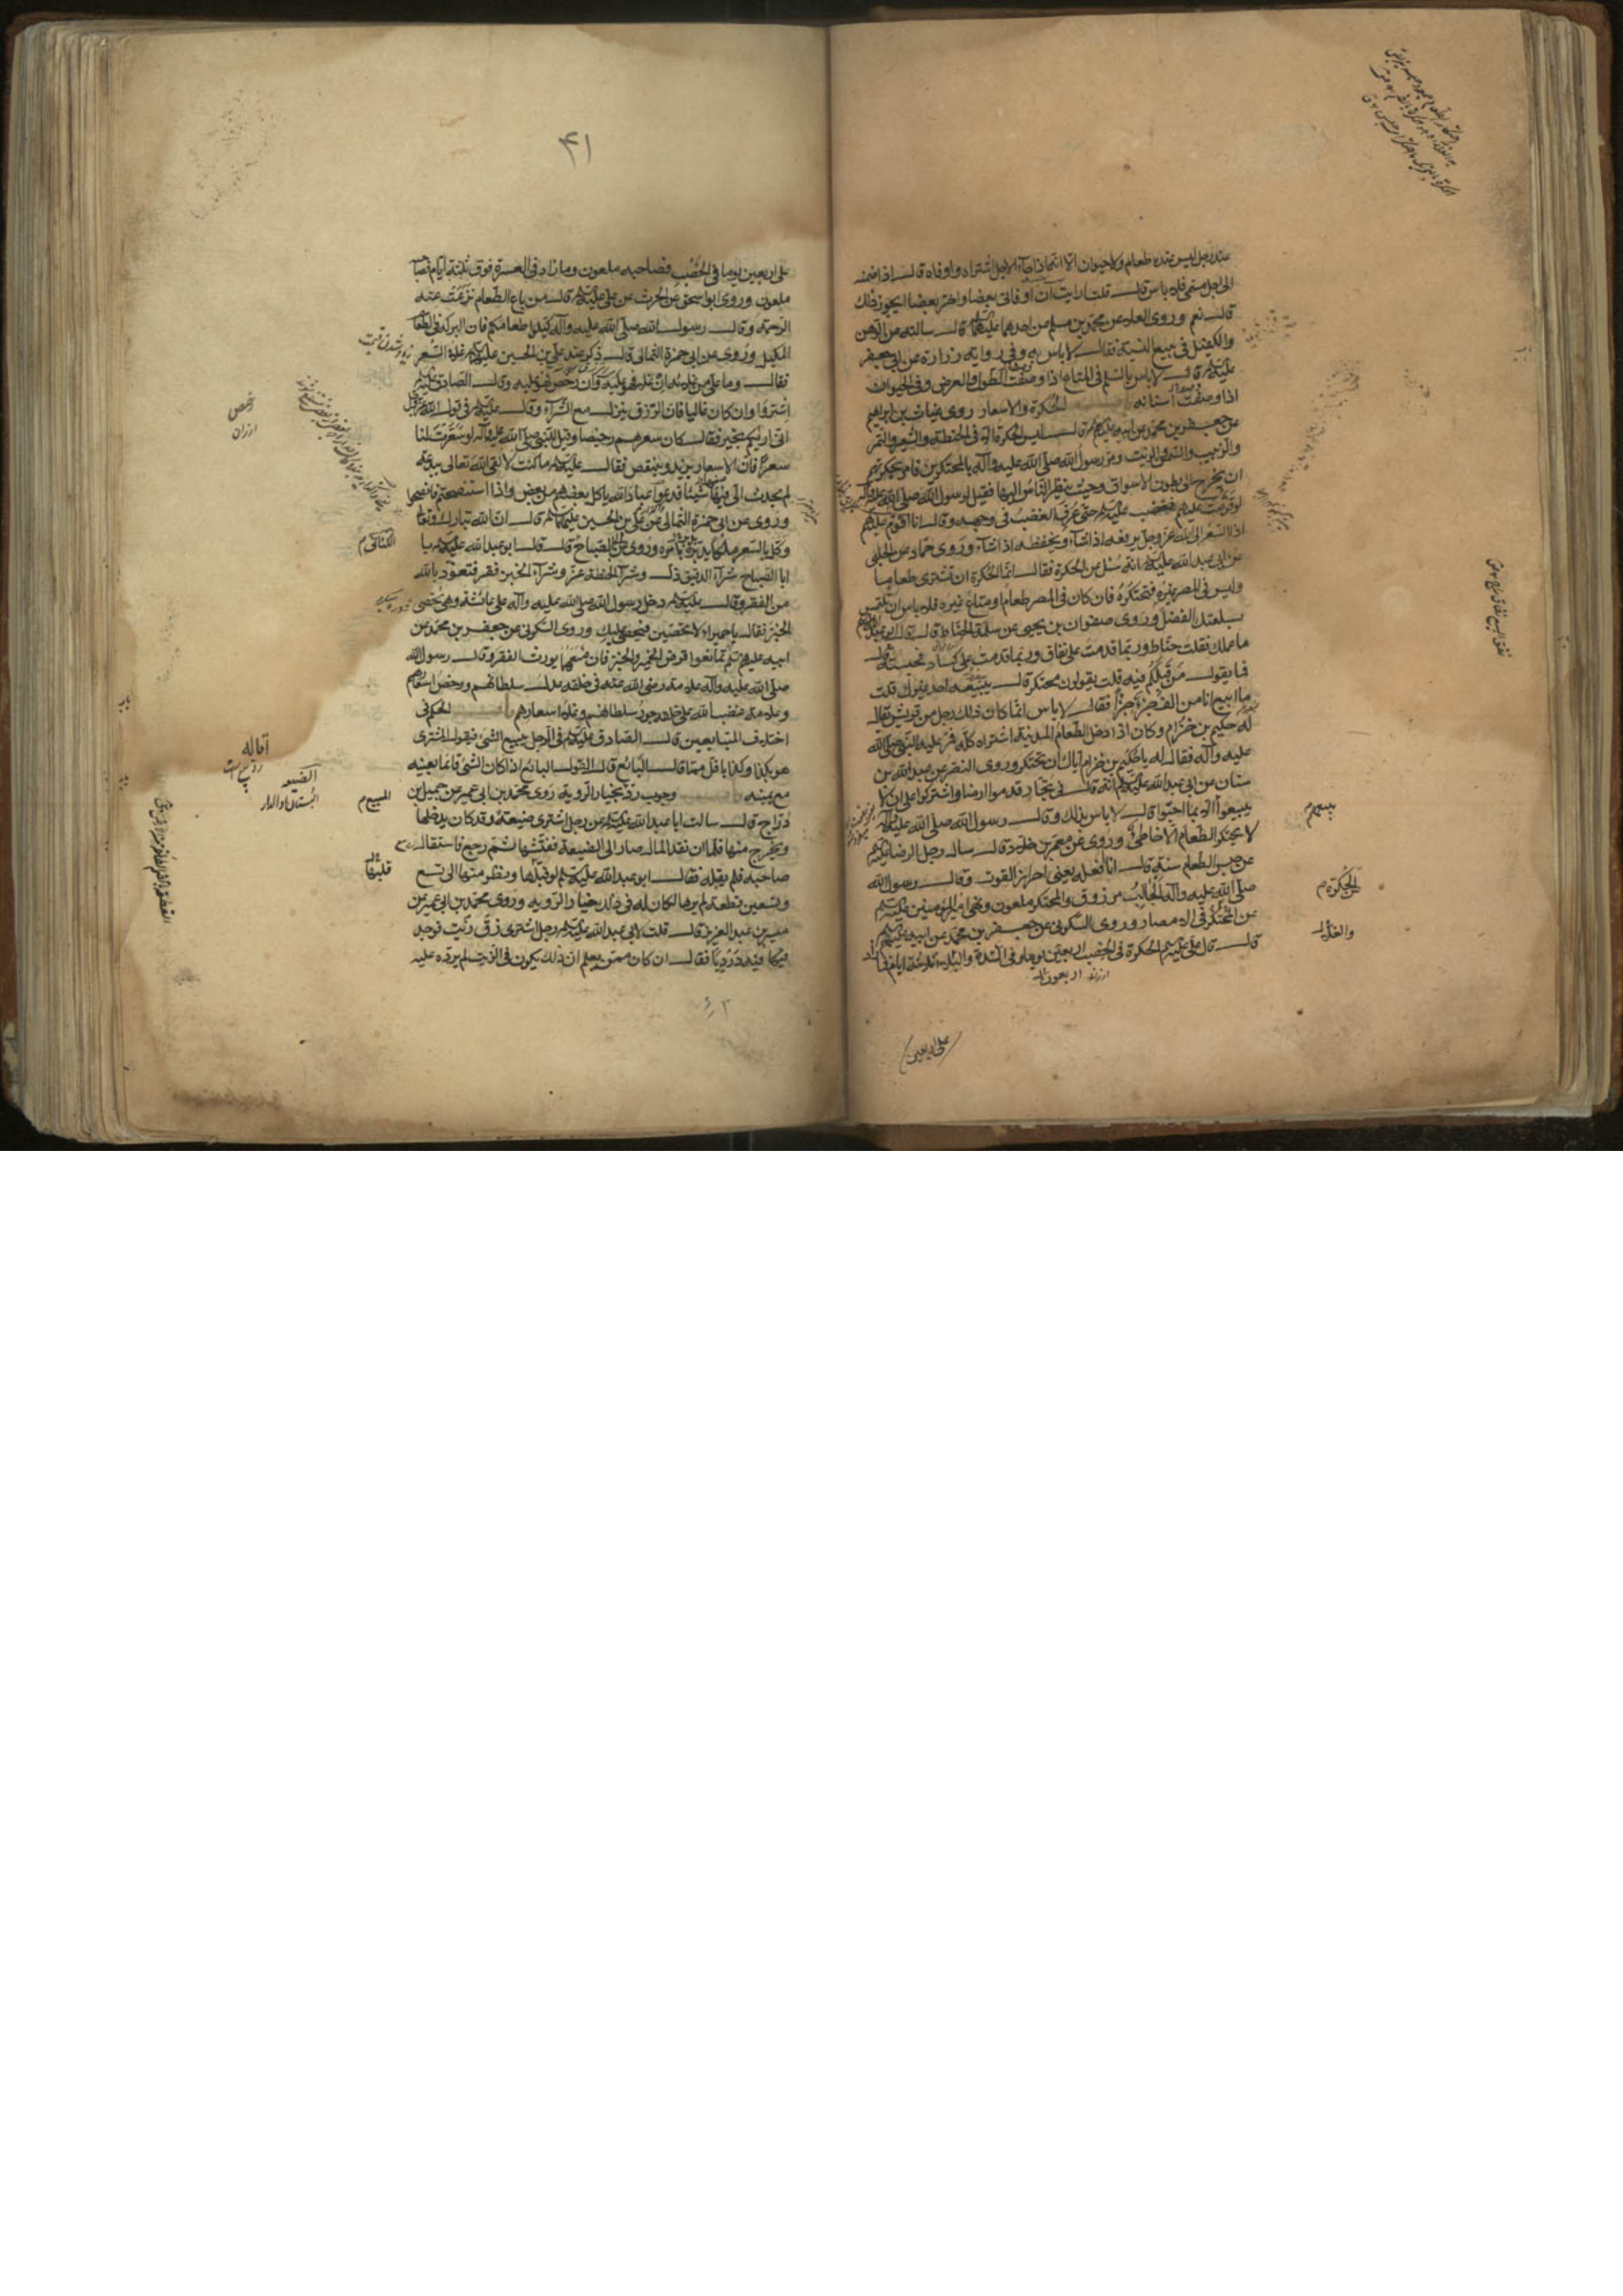 عند رجل ليس عنده طعام ولا حيوان الا انه اذا جاء الاجل اشتراه واوفاه قال اذا ضمنه
الى اجل مسمى فلا باس قال قلت ارايت ان اوفاني بعضا واخر بعضا ايجوز ذلك
قال نعم وروى العلا عن محمد بن مسلم عن احدهما عليهما السلم قال سالته عن الرهن
والكفيل فى بيع النسية فقال لا باس به وفى رواية زرارة عن ابى جعفر
عليه السلم قال لا باس بالسلم فى المتاع اذا وصفت الطول والعرض وفى الحيوان
اذا وصفت اسنانه الحكرة والاسعار روى غياث بن ابراهيم
عن جعفر بن محمد عن ابيه عليهما السلم قال ليس الحكرة الا فى الحنطة والشعير والتمر
والزبيب والسمن والزيت ومر رسول الله صلى الله عليه وآله بالمحتكرين فامر بحكرتهم
ان يخرج الى بطون الاسواق وحيث ينظر الناس اليها فقيل لرسول الله صلى الله عليه وآله
لو قومت عليهم فغضب عليه السلم حتى عرف الغضب فى وجهه وقال انا اقوم عليهم
انما السعر الى الله عز وجل يرفعه اذا شاء ويخفضه اذا شاء وروى حماد عن الحلبى
عن ابى عبد الله عليه السلم انه سئل عن الحكرة فقال انما الحكرة ان تشترى طعاما
وليس فى المصر غيره فتحتكره فان كان فى المصر طعام او متاع غيره فلا باس ان تلتمس
بسلعتك الفضل وروى صفوان بن يحيى عن سلمة الحناط قال قال ابو عبد الله
ما عملك فقلت حناط وربما قدمت على نفاق وربما قدمت على كساد فحبست قال
فما يقول من قبلكم فيه قلت يقولون محتكر قال يبيعه احد غيرك قلت
ما ابيع انا من الف جزء جزءا فقال لا باس انما كان ذلك رجل من قريش يقال
له حكيم بن حزام وكان اذا دخل الطعام المدينة اشتراه كله فمر عليه النبى صلى الله
عليه وآله فقال له يا حكيم بن حزام اياك ان تحتكر وروى النضر عن عبد الله بن
سنان عن ابى عبد الله عليه السلم انه قال فى تجار قدموا ارضا واشتركوا على ان لا
يبيعوا الا بما احبوا قال لا باس بذلك وقال رسول الله صلى الله عليه وآله
لا يحتكر الطعام الا خاطئ وروى عن معمر بن خلاد قال سال رجل الرضا عليه السلم
عن حبس الطعام سنة قال انا افعله يعنى احراز القوت وقال رسول الله
صلى الله عليه وآله الجالب مرزوق والمحتكر ملعون ونهى امير المؤمنين عليه السلم
عن الحكر فى الامصار وروى السكونى عن جعفر بن محمد عن ابيه عليهما السلم
قال قال على عليه السلم الحكرة فى الخصب اربعين يوما وفى الشدة والبلاء ثلاثة ايام فما زاد
اربعون
على اربعين
بيعهم
الحكرة م
والغلا
۴۱
على اربعين يوما فى الخصب فصاحبه ملعون وما زاد فى العسرة فوق ثلثة ايام فصاحبه
ملعون وروى ابو اسحق عن الحرث عن على عليه السلم قال من باع الطعام نزعت عنه
الرحمة وقال رسول الله صلى الله عليه وآله كيلوا طعامكم فان البركة فى الطعام
المكيل وروى عن ابى حمزة الثمالى قال ذكر عند على بن الحسين عليهما السلم غلاء السعر
فقال وما على من غلائه ان غلا فهو عليه وان رخص فهو عليه وقال الصادق عليه السلم
اشتروا وان كان غاليا فان الرزق ينزل مع الشراء وقال عليه السلم فى قول الله عز وجل
انى اريكم بخير فقال كان سعرهم رخيصا وقيل للنبى صلى الله عليه وآله لو سعرت لنا
سعرا فان الاسعار يزيد وينقص فقال عليه السلم ما كنت لالقى الله تعالى ببدعة
لم يحدث الى فيها شيئا فدعوا عباد الله ياكل بعضهم من بعض واذا استنصحتم فانصحوا
وروى عن ابى حمزة الثمالى عن على بن الحسين عليهما السلم قال ان الله تبارك وتعالى
وكل بالسعر ملكا يدبره بامره وروى عن ابى الصباح قال قال ابو عبد الله عليه السلم يا
ابا الصباح شراء الدقيق ذل وشراء الحنطة عز وشراء الخبز فقر فتعوذ بالله
من الفقر وقال عليه السلم دخل رسول الله صلى الله عليه وآله على عائشة وهى تحصى
الخبز فقال يا حميراء لا تحصين فيحصى عليك وروى السكونى عن جعفر بن محمد عن
ابيه عليهما السلم لا تمانعوا قرض الخمير والخبز فان منعهما يورث الفقر وقال رسول الله
صلى الله عليه وآله علامة رضى الله عنه فى خلقه عدل سلطانهم ورخص اسعارهم
وعلامة غضب الله على خلقه جور سلطانهم وغلا اسعارهم الحكم فى
اختلاف المتبايعين قال الصادق عليه السلم فى الرجل يبيع الشئ فيقول المشترى
هو بكذا وكذا باقل مما قال البائع قال القول قول البائع اذا كان الشئ قائما بعينه
مع يمينه وجوب رد بخيار الروية روى محمد بن ابى عمير عن جميل بن
دراج قال سالت ابا عبد الله عليه السلم عن رجل اشترى ضيعة وقد كان يدخلها
ويخرج منها فلما ان نقد المال صار الى الضيعة ففتشها ثم رجع فاستقال
صاحبه فلم يقله فقال ابو عبد الله عليه السلم لو قبلها ونظر منها الى تسع
وتسعين قطعة لم يرها لكان له فى ذلك خيار الروية وروى محمد بن ابى عمير عن
ميسر بن عبد العزيز قال قلت لابى عبد الله عليه السلم رجل اشترى زق زيت فوجد
فيه درديا فقال ان كان ممن يعلم ان ذلك يكون فى الزيت لم يرده عليه
رخص
ارزان
الكنانى م
اقاله
الضيعه
البستان والدار
المبيع م
قلبها